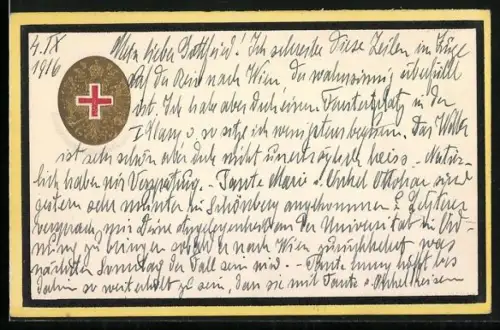 4. IX
1916
Mein lieber Gottfried! Ich schreibe diese Zeilen im Zuge
auf der Reise nach Wien, der wahnsinnig überfüllt
ist. Ich habe aber doch einen Fensterplatz in der
I Klasse u. so sitze ich wenigstens bequem. Das Wetter
ist sehr schön aber doch nicht unerträglich heiss. - Natür-
lich haben wir Verspätung. - Tante Marie u. Onkel Ottokar sind
gestern sehr munter in Schönberg angekommen u. Letzterer
versprach, mir Deine Angelegenheit an der Universität in Ord-
nung zu bringen sobald er nach Wien zurückkehrt was
nächsten Sonntag der Fall sein wird. - Tante hofft bis
dahin so weit erholt zu sein, dass sie mit Tante u. Onkel reisen